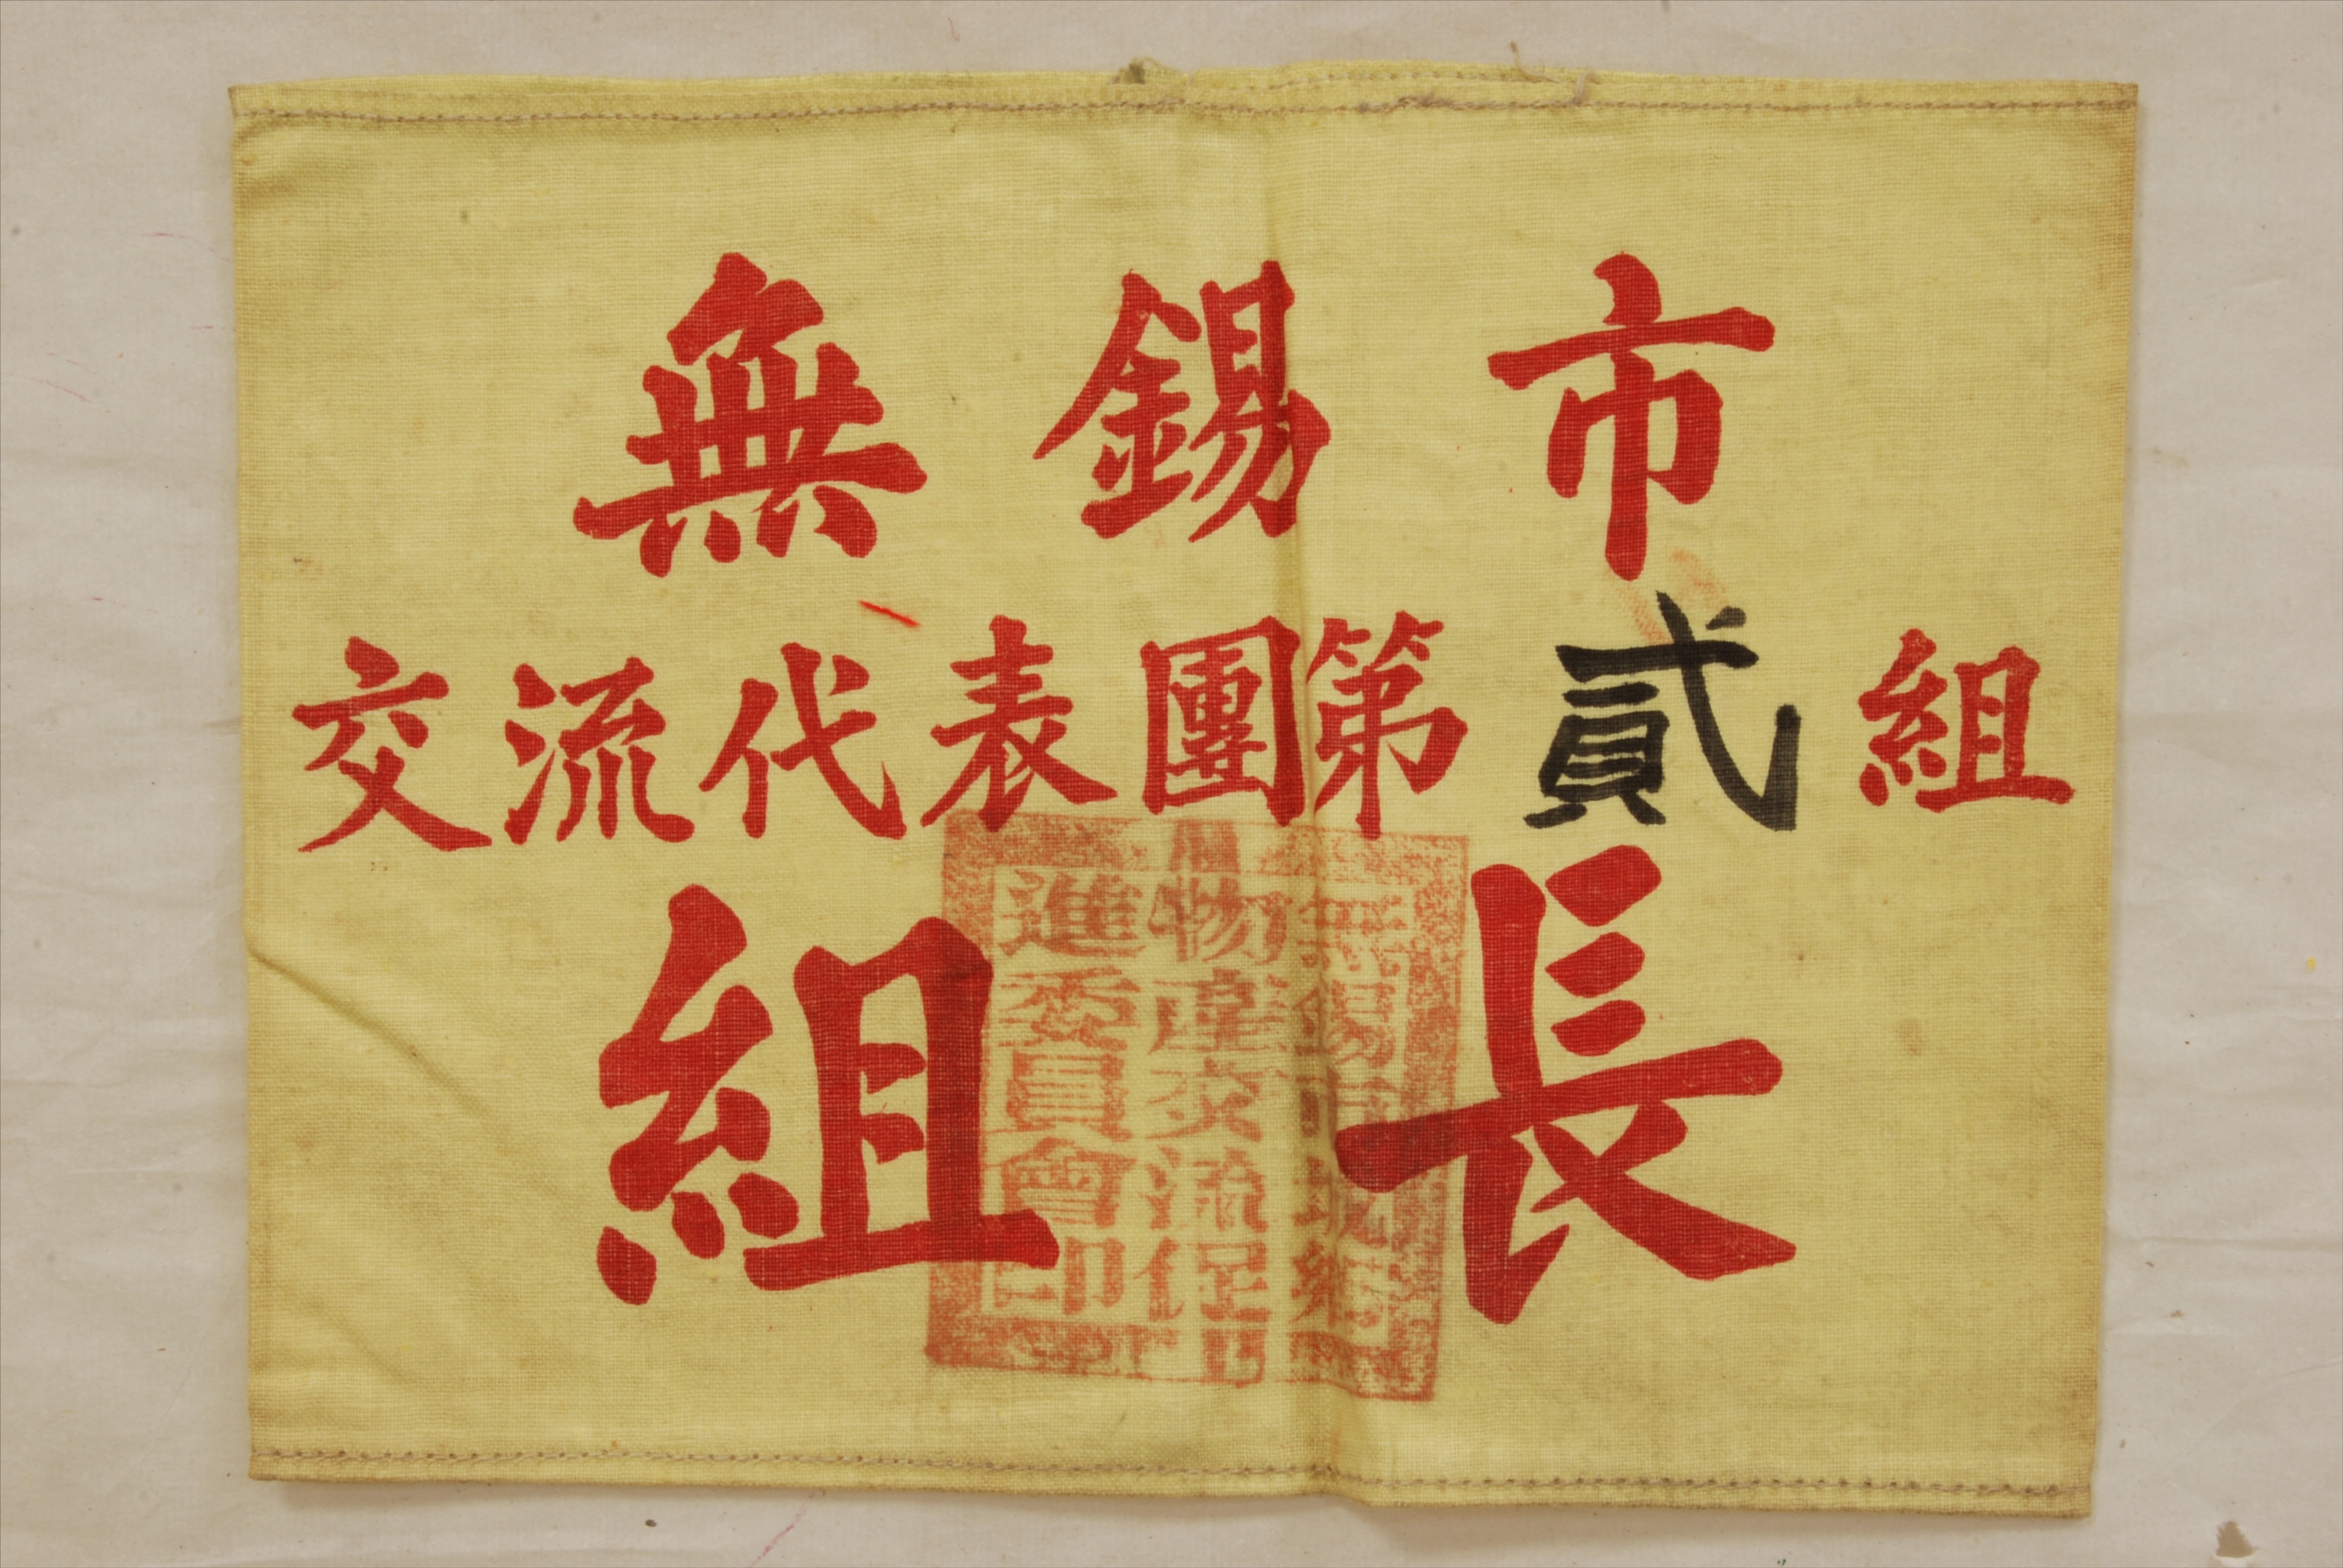 無錫市
交流代表團第貳組
組長
無錫市城鄉
物產交流促
進委員會印